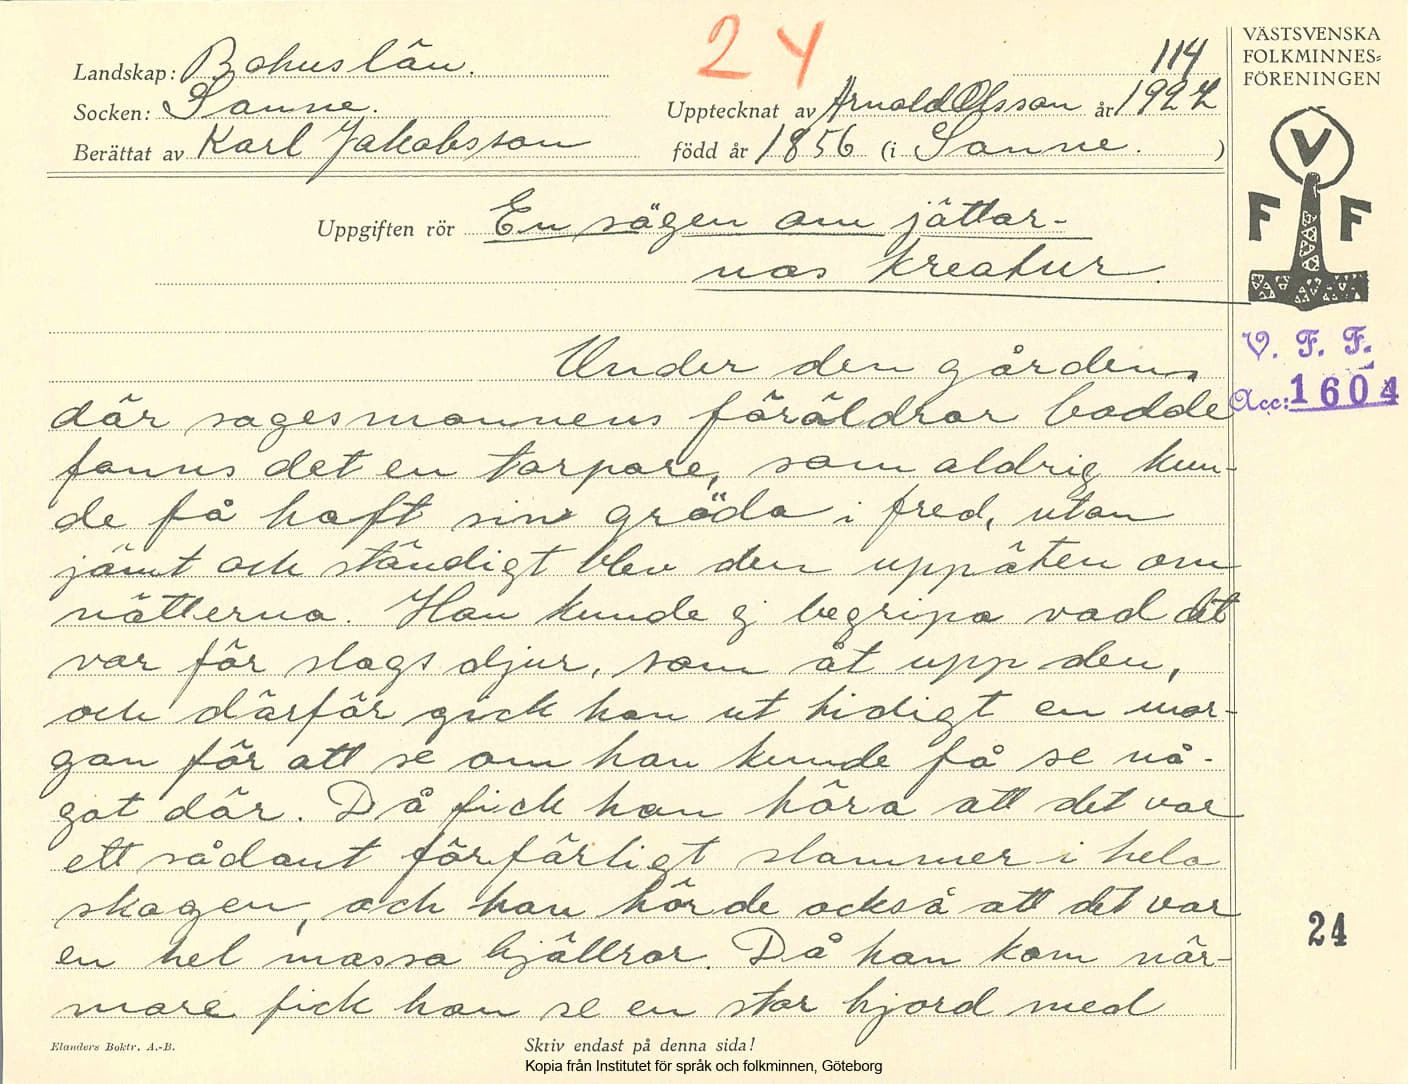 24
114
VÄSTSVENSKA
FOLKMINNES=
FÖRENINGEN
Landskap: Bohuslän.
Socken: Sanne.
Upptecknat av Arnold Olsson år 1927
Berättat av Karl Jakobsson
född år 1856 (i Sanne. )
V
F F
Uppgiften rör En sägen om jättar-
nas kreatur.
V. F. F.
Acc: 1604
Under den gården,
där sagesmannens föräldrar bodde
fanns det en torpare, som aldrig kun-
de få haft sin gröda i fred, utan
jämt och ständigt blev den uppäten om
nätterna. Han kunde ej begripa vad det
var för slags djur, som åt upp den,
och därför gick han ut tidigt en mor-
gon för att se om han kunde få se nå-
got där. Då fick han höra att det var
ett sådant förfärligt slammer i hela
skogen, och han hörde också att det var
en hel massa bjällror. Då han kom när-
mare fick han se en stor hjord med
24
Elanders Boktr. A.-B.
Skriv endast på denna sida!
Kopia från Institutet för språk och folkminnen, Göteborg